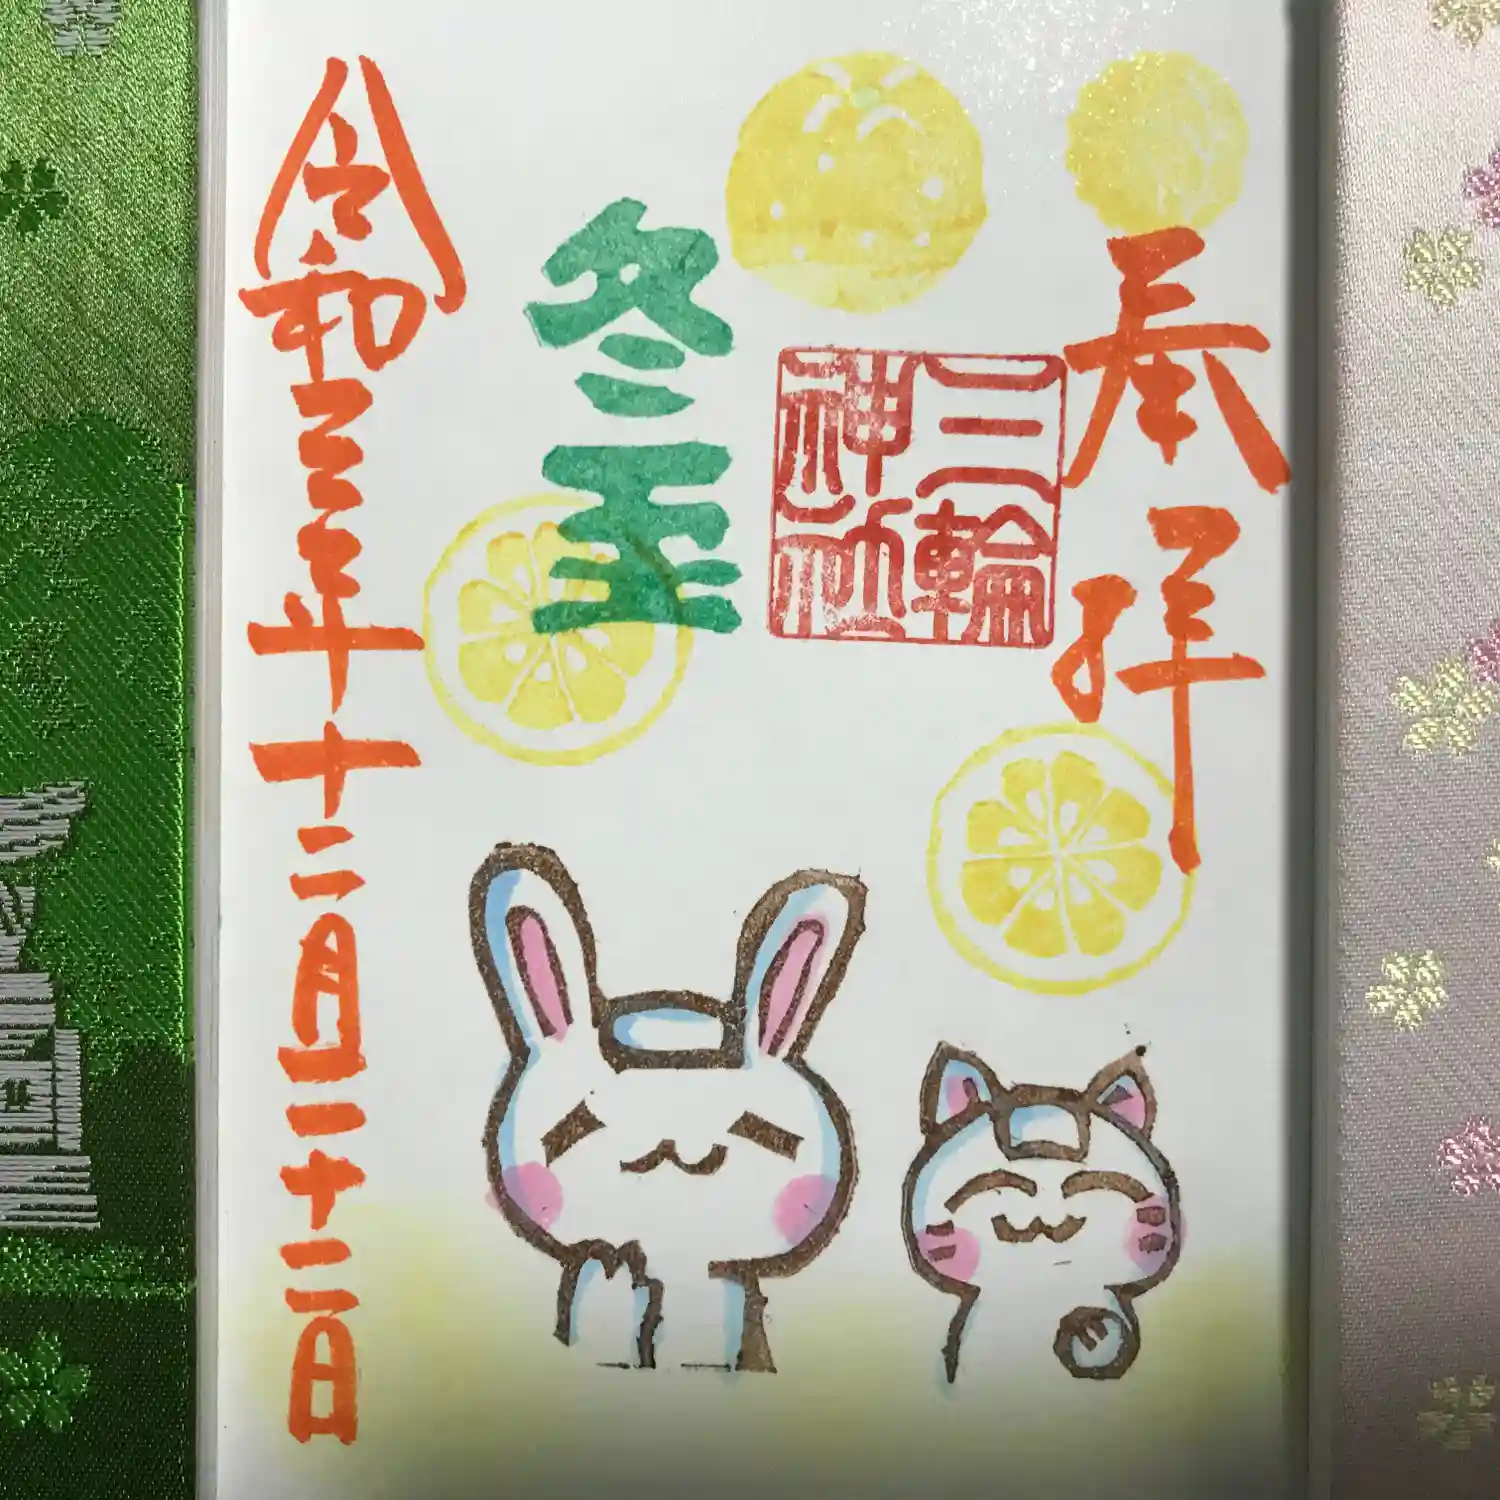 奉拝
三輪
神社
冬至
令和三年十二月二十二日